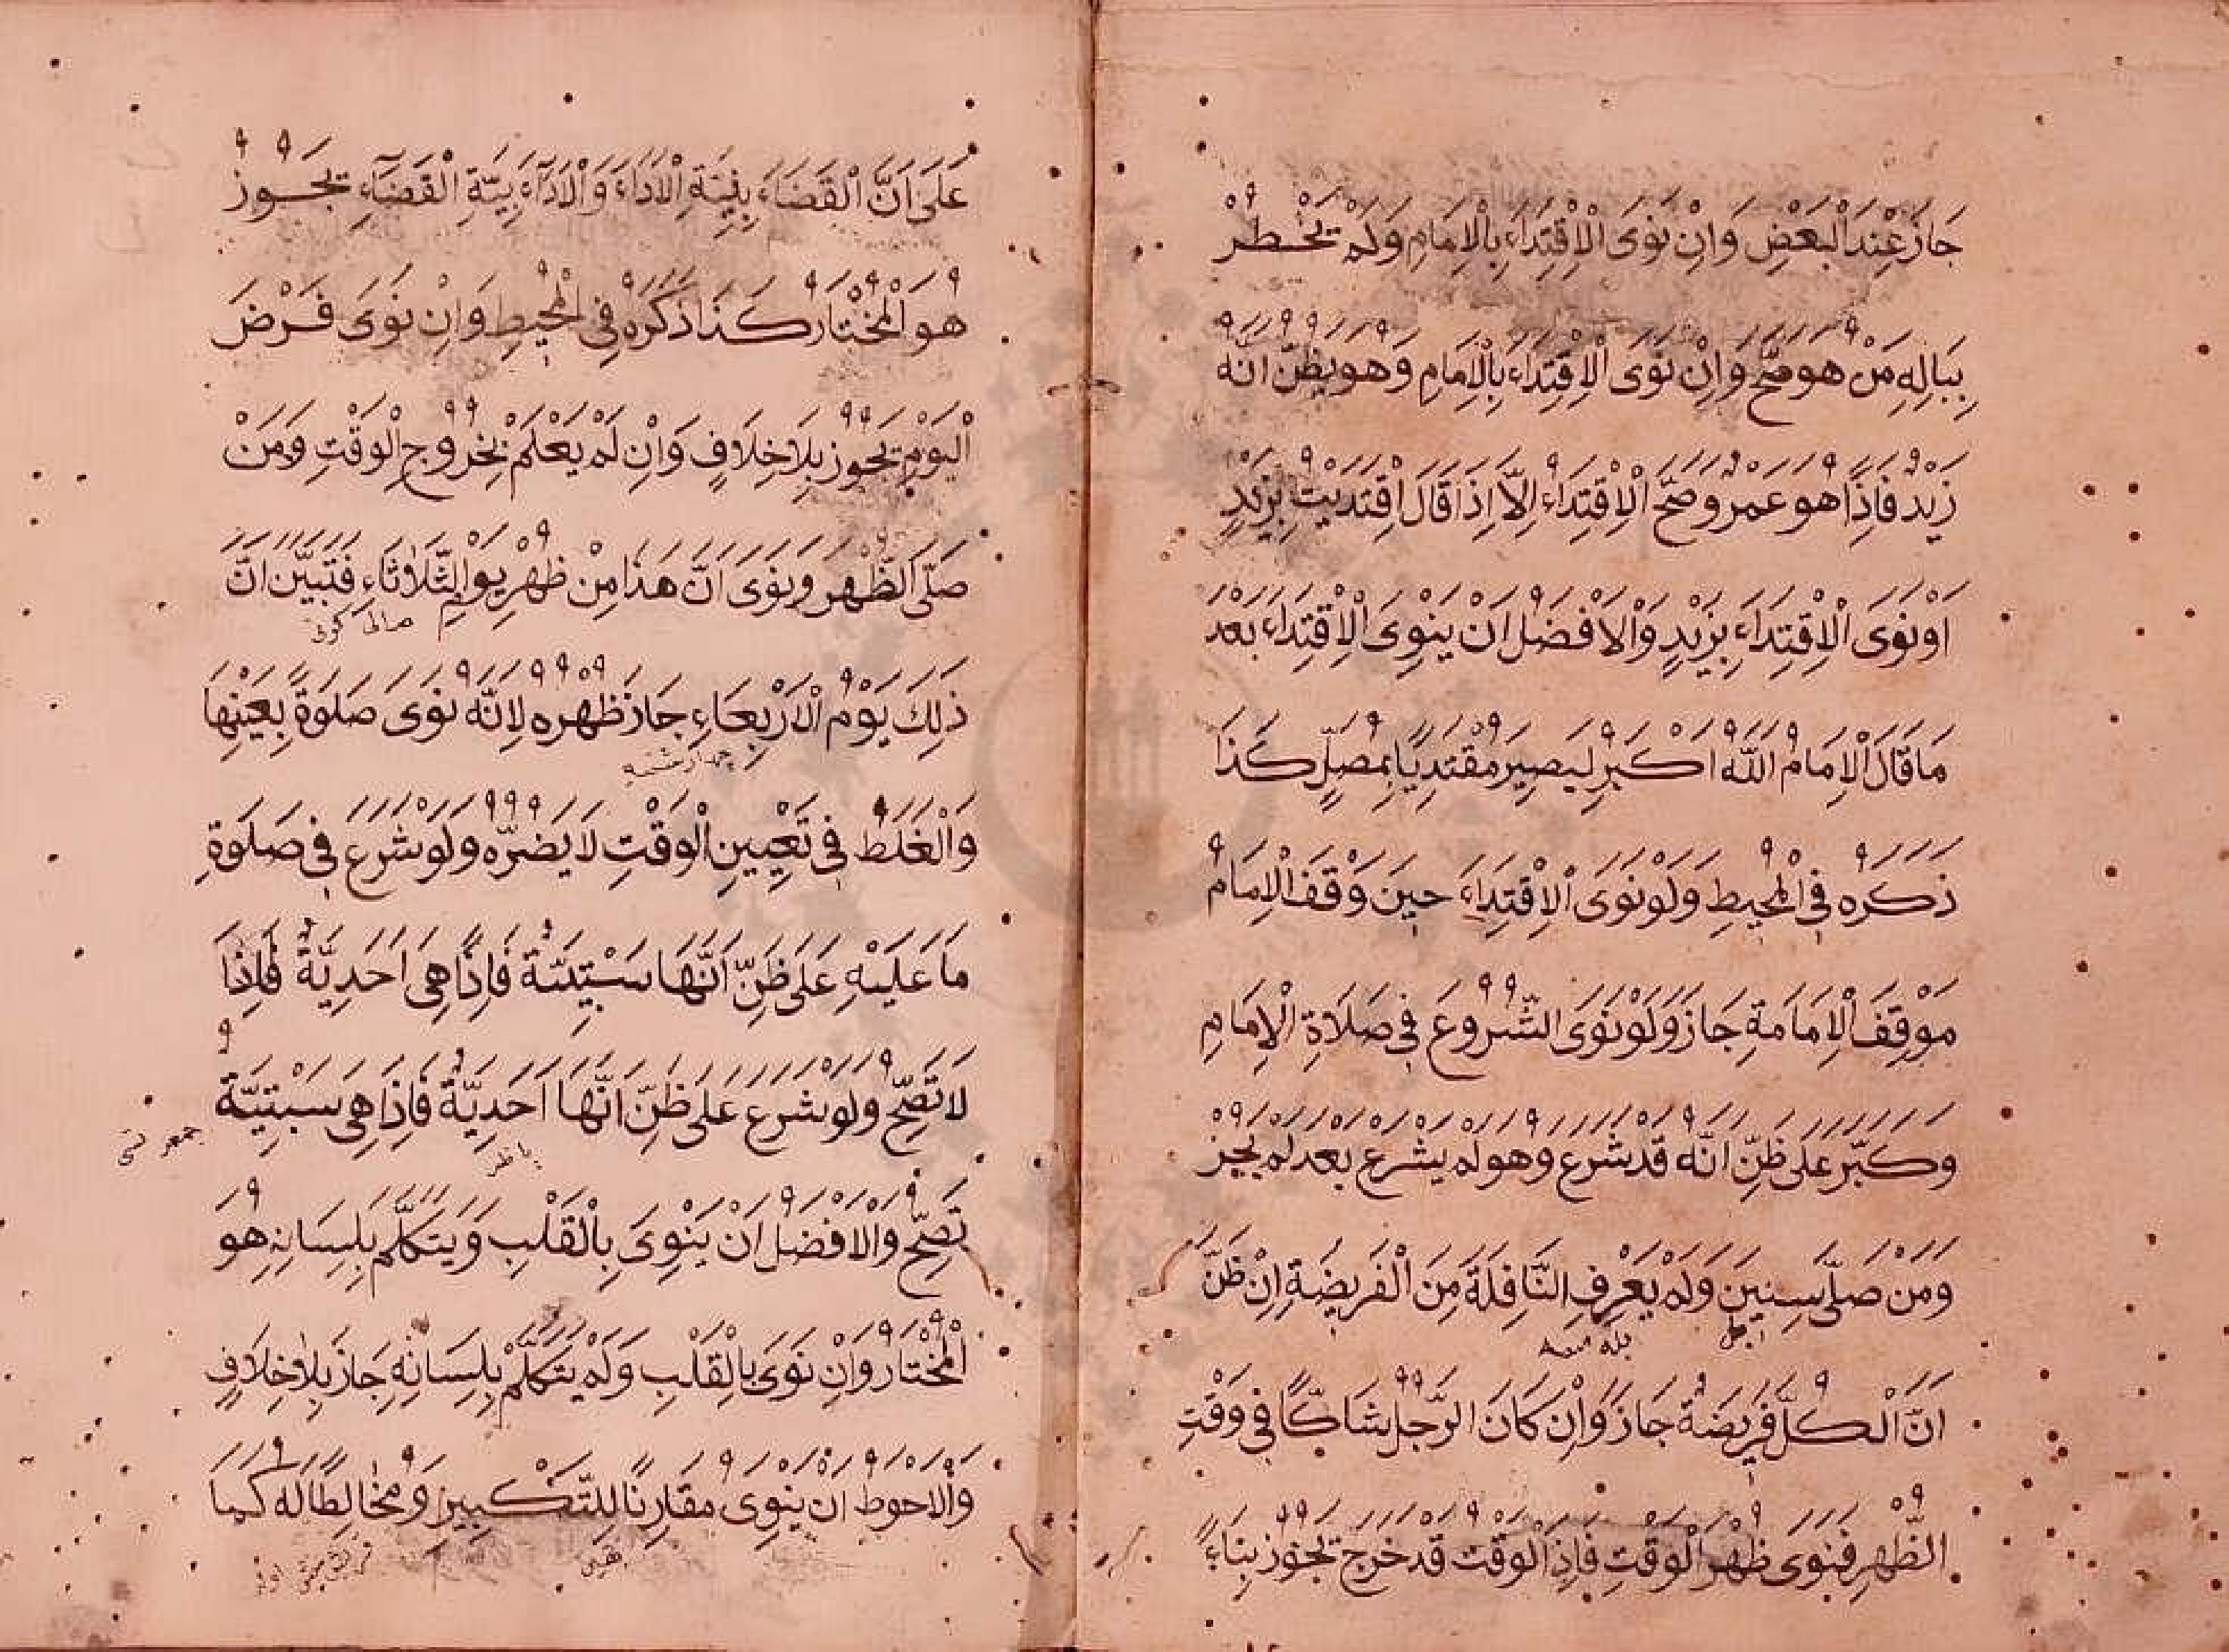 جَازَ عِنْدَ الْبَعْضِ وَاِنْ نَوَى الْاِقْتِدَاءَ بِالْاِمَامِ وَلَمْ يَخْطُرْ
بِبَالِهِ مَنْ هُوَ صَحَّ وَاِنْ نَوَى الْاِقْتِدَاءَ بِالْاِمَامِ وَهُوَ يَظُنُّ اَنَّهُ
زَيْدٌ فَاِذًا هُوَ عَمْرٌو صَحَّ الْاِقْتِدَاءُ اِلَّا اِذَا قَالَ اقْتَدَيْتُ بِزَيْدٍ
اَوْ نَوَى الْاِقْتِدَاءَ بِزَيْدٍ وَالْاَفْضَلُ اَنْ يَنْوِىَ الْاِقْتِدَاءَ بَعْدَ
مَا قَالَ الْاِمَامُ اللّٰهُ اَكْبَرُ لِيَصِيرَ مُقْتَدِيًا بِمُصَلٍّ كَذَا
ذَكَرَهُ فِى الْمُحِيطِ وَلَوْ نَوَى الْاِقْتِدَاءَ حِينَ وَقَفَ الْاِمَامُ
مَوْقِفَ الْاِمَامَةِ جَازَ وَلَوْ نَوَى الشُّرُوعَ فِى صَلَاةِ الْاِمَامِ
وَكَبَّرَ عَلَى ظَنِّ اَنَّهُ قَدْ شَرَعَ وَهُوَ لَمْ يَشْرَعْ بَعْدُ لَمْ يَجُزْ
وَمَنْ صَلَّى سِنِينَ وَلَمْ يَعْرِفِ النَّافِلَةَ مِنَ الْفَرِيضَةِ اِنْ ظَنَّ
اَنَّ الْكُلَّ فَرِيضَةٌ جَازَ وَاِنْ كَانَ الرَّجُلُ شَاكًّا فِى وَقْتِ
الظُّهْرِ فَنَوَى ظُهْرَ الْوَقْتِ فَاِذَا الْوَقْتُ قَدْ خَرَجَ تَجُوزُ بِنَاءً
عَلَى اَنَّ الْقَضَاءَ بِنِيَّةِ الْاَدَاءِ وَالْاَدَاءَ بِنِيَّةِ الْقَضَاءِ يَجُوزُ
هُوَ الْمُخْتَارُ كَذَا ذَكَرَهُ فِى الْمُحِيطِ وَاِنْ نَوَى فَرْضَ
الْيَوْمِ يَجُوزُ بِلَا خِلَافٍ وَاِنْ لَمْ يَعْلَمْ بِخُرُوجِ الْوَقْتِ وَمَنْ
صَلَّى الظُّهْرَ وَنَوَى اَنَّ هَذَا مِنْ ظُهْرِ يَوْمِ الثَّلَاثَاءِ فَتَبَيَّنَ اَنَّ
صالى كونى
ذَلِكَ يَوْمُ الْاَرْبِعَاءِ جَازَ ظُهْرُهُ لِاَنَّهُ نَوَى صَلَوةً بِعَيْنِهَا
چهارشنبه
وَالْغَلَطُ فِى تَعْيِينِ الْوَقْتِ لَا يَضُرُّهُ وَلَوْ شَرَعَ فِى صَلَوةٍ
مَا عَلَيْهِ عَلَى ظَنِّ اَنَّهَا سَبْتِيَّةٌ فَاِذًا هِىَ اَحَدِيَّةٌ فَاِذًا
لَا تَصِحُّ وَلَوْ شَرَعَ عَلَى ظَنِّ اَنَّهَا اَحَدِيَّةٌ فَاِذَا هِىَ سَبْتِيَّةٌ
تَصِحُّ وَالْاَفْضَلُ اَنْ يَنْوِىَ بِالْقَلْبِ وَيَتَكَلَّمَ بِلِسَانِهِ هُوَ
الْمُخْتَارُ وَاِنْ نَوَى بِالْقَلْبِ وَلَمْ يَتَكَلَّمْ بِلِسَانِهِ جَازَ بِلَا خِلَافٍ
وَالْاَحْوَطُ اَنْ يَنْوِىَ مُقَارِنًا لِلتَّكْبِيرِ وَمُخَالِطًا لَهُ كَمَا